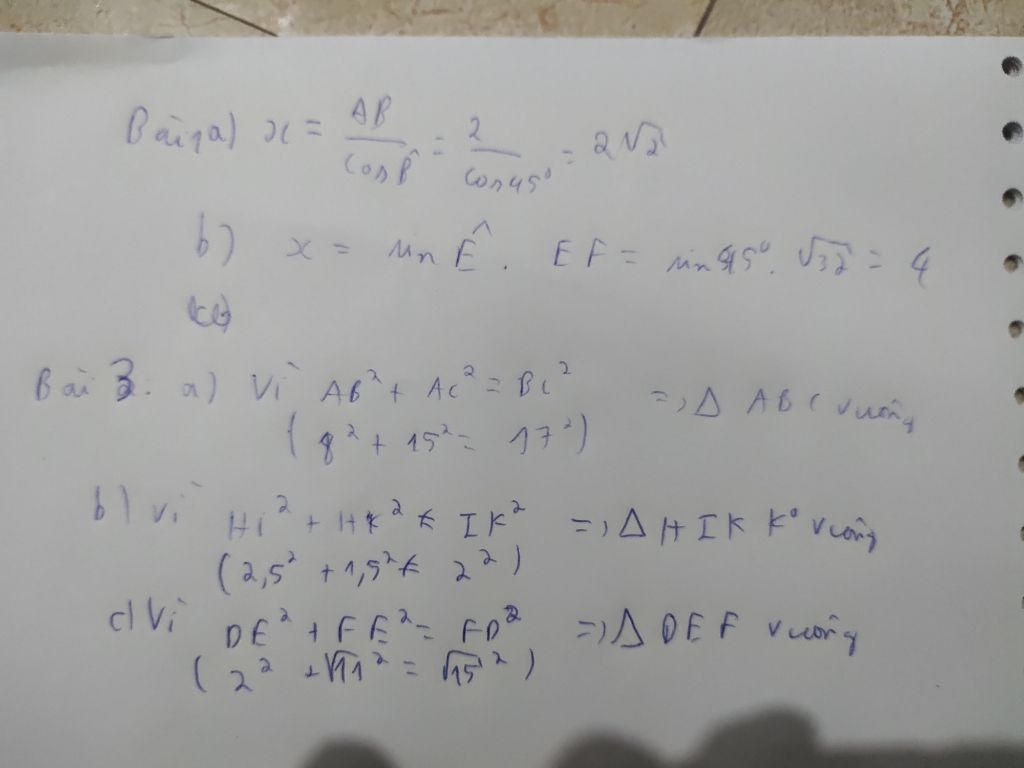 Bài 1 a) x = AB / cos B̂ = 2 / cos 45° = 2√2
b) x = sin Ê . EF = sin 45° . √32 = 4
Bài 3. a) Vì AB² + AC² = BC² => Δ ABC vuông
( 8² + 15² = 17² )
b) Vì HI² + HK² ≠ IK² => Δ HIK K° vuông
( 2,5² + 1,5² ≠ 2² )
c) Vì DE² + FE² = FD² => Δ DEF vuông
( 2² + √11² = √15² )